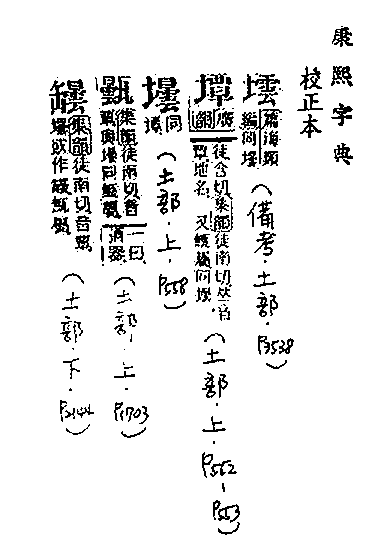 康熙字典
校正本
篇海類編同壜(備考.土部.P3538)
墰 廣韻徒含切集韻徒南切𠀤音覃地名 又甀屬同壜(土部.上.P552-P553)
壜 同墰(土部.上.P558)
集韻徒南切音覃與壜同甀屬一曰酒器(土部.上.P1703)
罎 集韻徒南切音覃壜或作罎甀屬(土部.下.P2144)